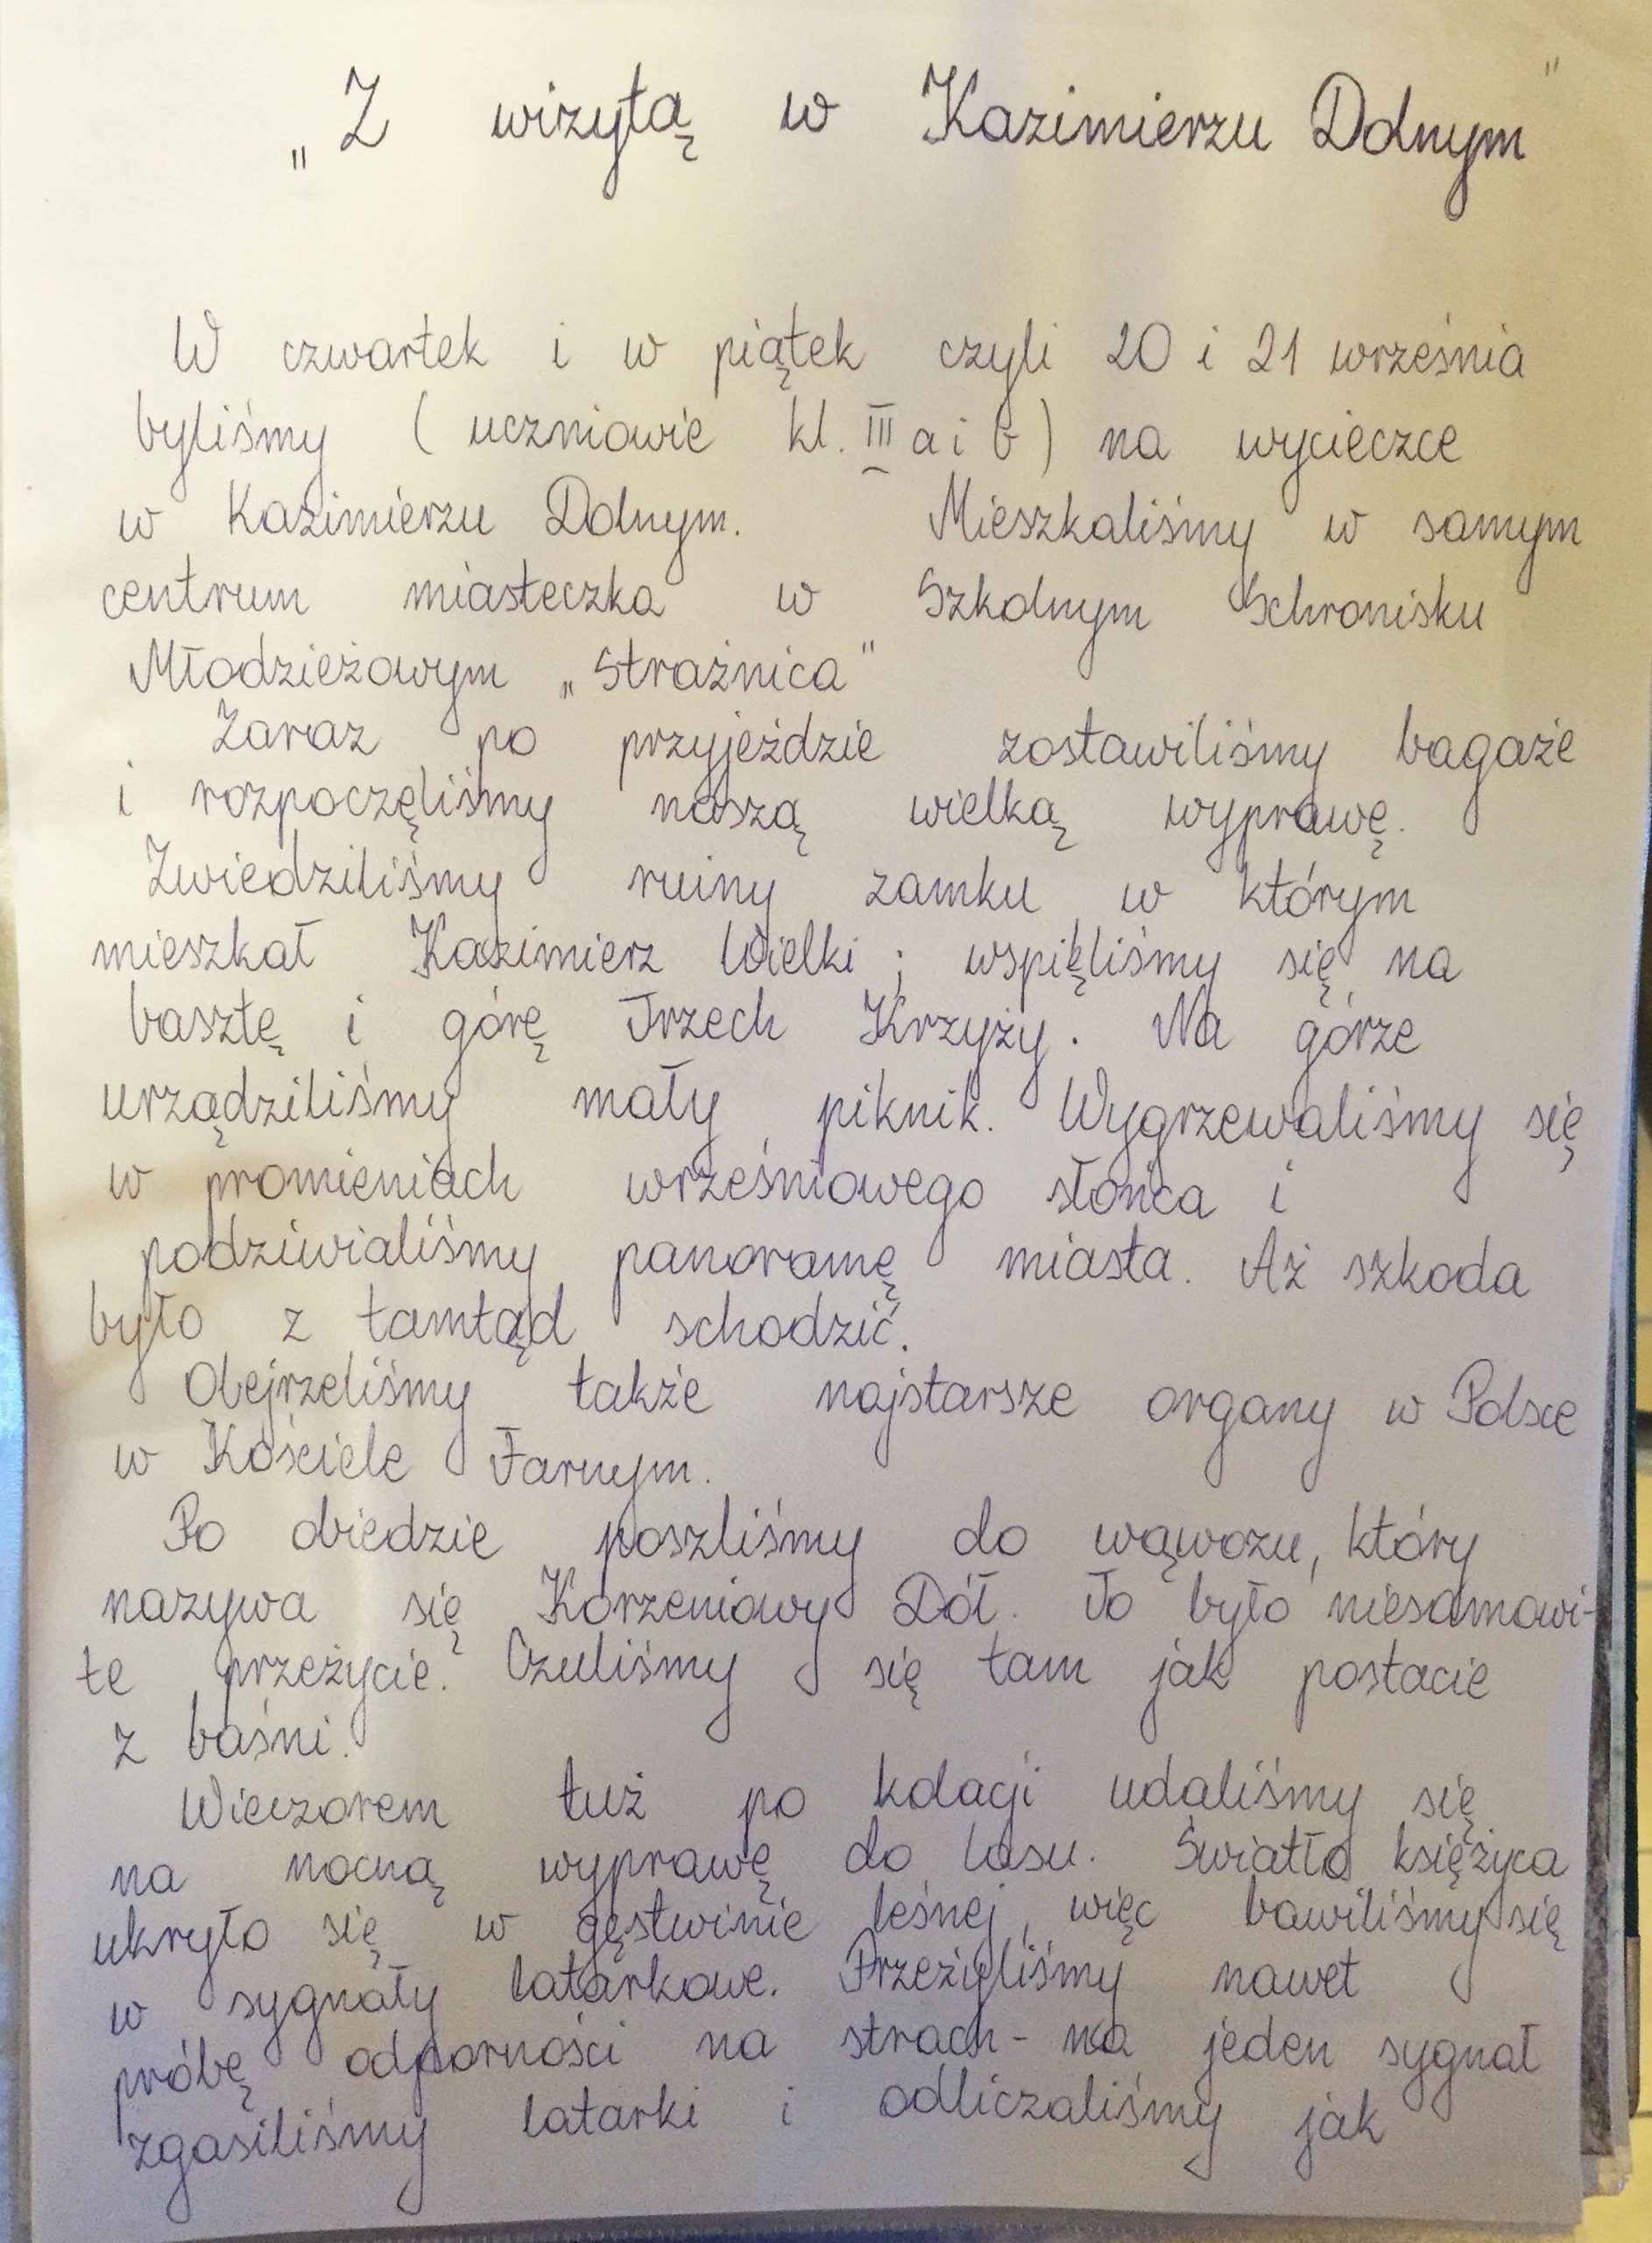 „Z wizytą w Kazimierzu Dolnym"
W czwartek i w piątek czyli 20 i 21 września
byliśmy ( uczniowie kl. III a i b ) na wycieczce
w Kazimierzu Dolnym. Mieszkaliśmy w samym
centrum miasteczka w Szkolnym Schronisku
Młodzieżowym „Strażnica"
Zaraz po przyjeździe zostawiliśmy bagaże
i rozpoczęliśmy naszą wielką wyprawę.
Zwiedziliśmy ruiny zamku w którym
mieszkał Kazimierz Wielki ; wspięliśmy się na
basztę i górę Trzech Krzyży. Na górze
urządziliśmy mały piknik. Wygrzewaliśmy się
w promieniach wrześniowego słońca i
podziwialiśmy panoramę miasta. Aż szkoda
było z tamtąd schodzić.
Obejrzeliśmy także najstarsze organy w Polsce
w Kościele Farnym.
Po obiedzie poszliśmy do wąwozu, który
nazywa się Korzeniowy Dół. To było niesamowi-
te przeżycie. Czuliśmy się tam jak postacie
z baśni.
Wieczorem tuż po kolacji udaliśmy się
na nocną wyprawę do lasu. Światło księżyca
ukryło się w gęstwinie leśnej, więc bawiliśmy się
w sygnały latarkowe. Przeżyliśmy nawet
próbę odporności na strach - na jeden sygnał
zgasiliśmy latarki i odliczaliśmy jak